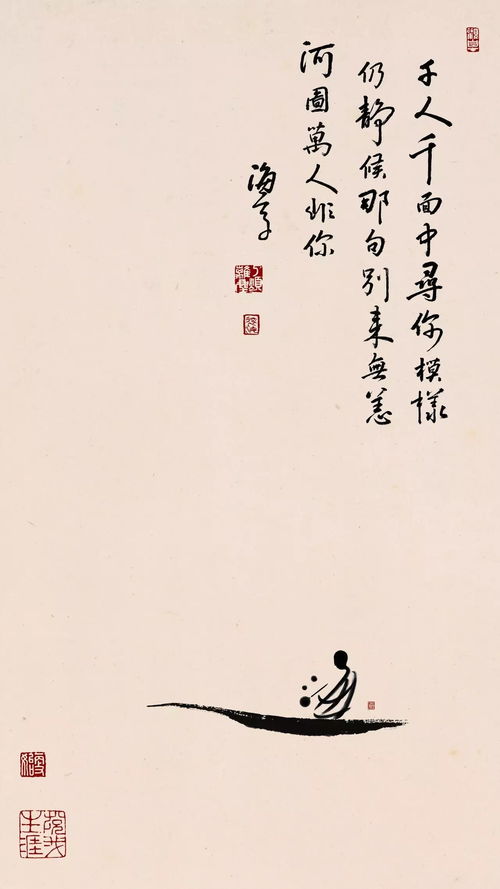 千人千面中尋你模樣
仍靜候那句別来無恙
河圖萬人非你
海
生涯